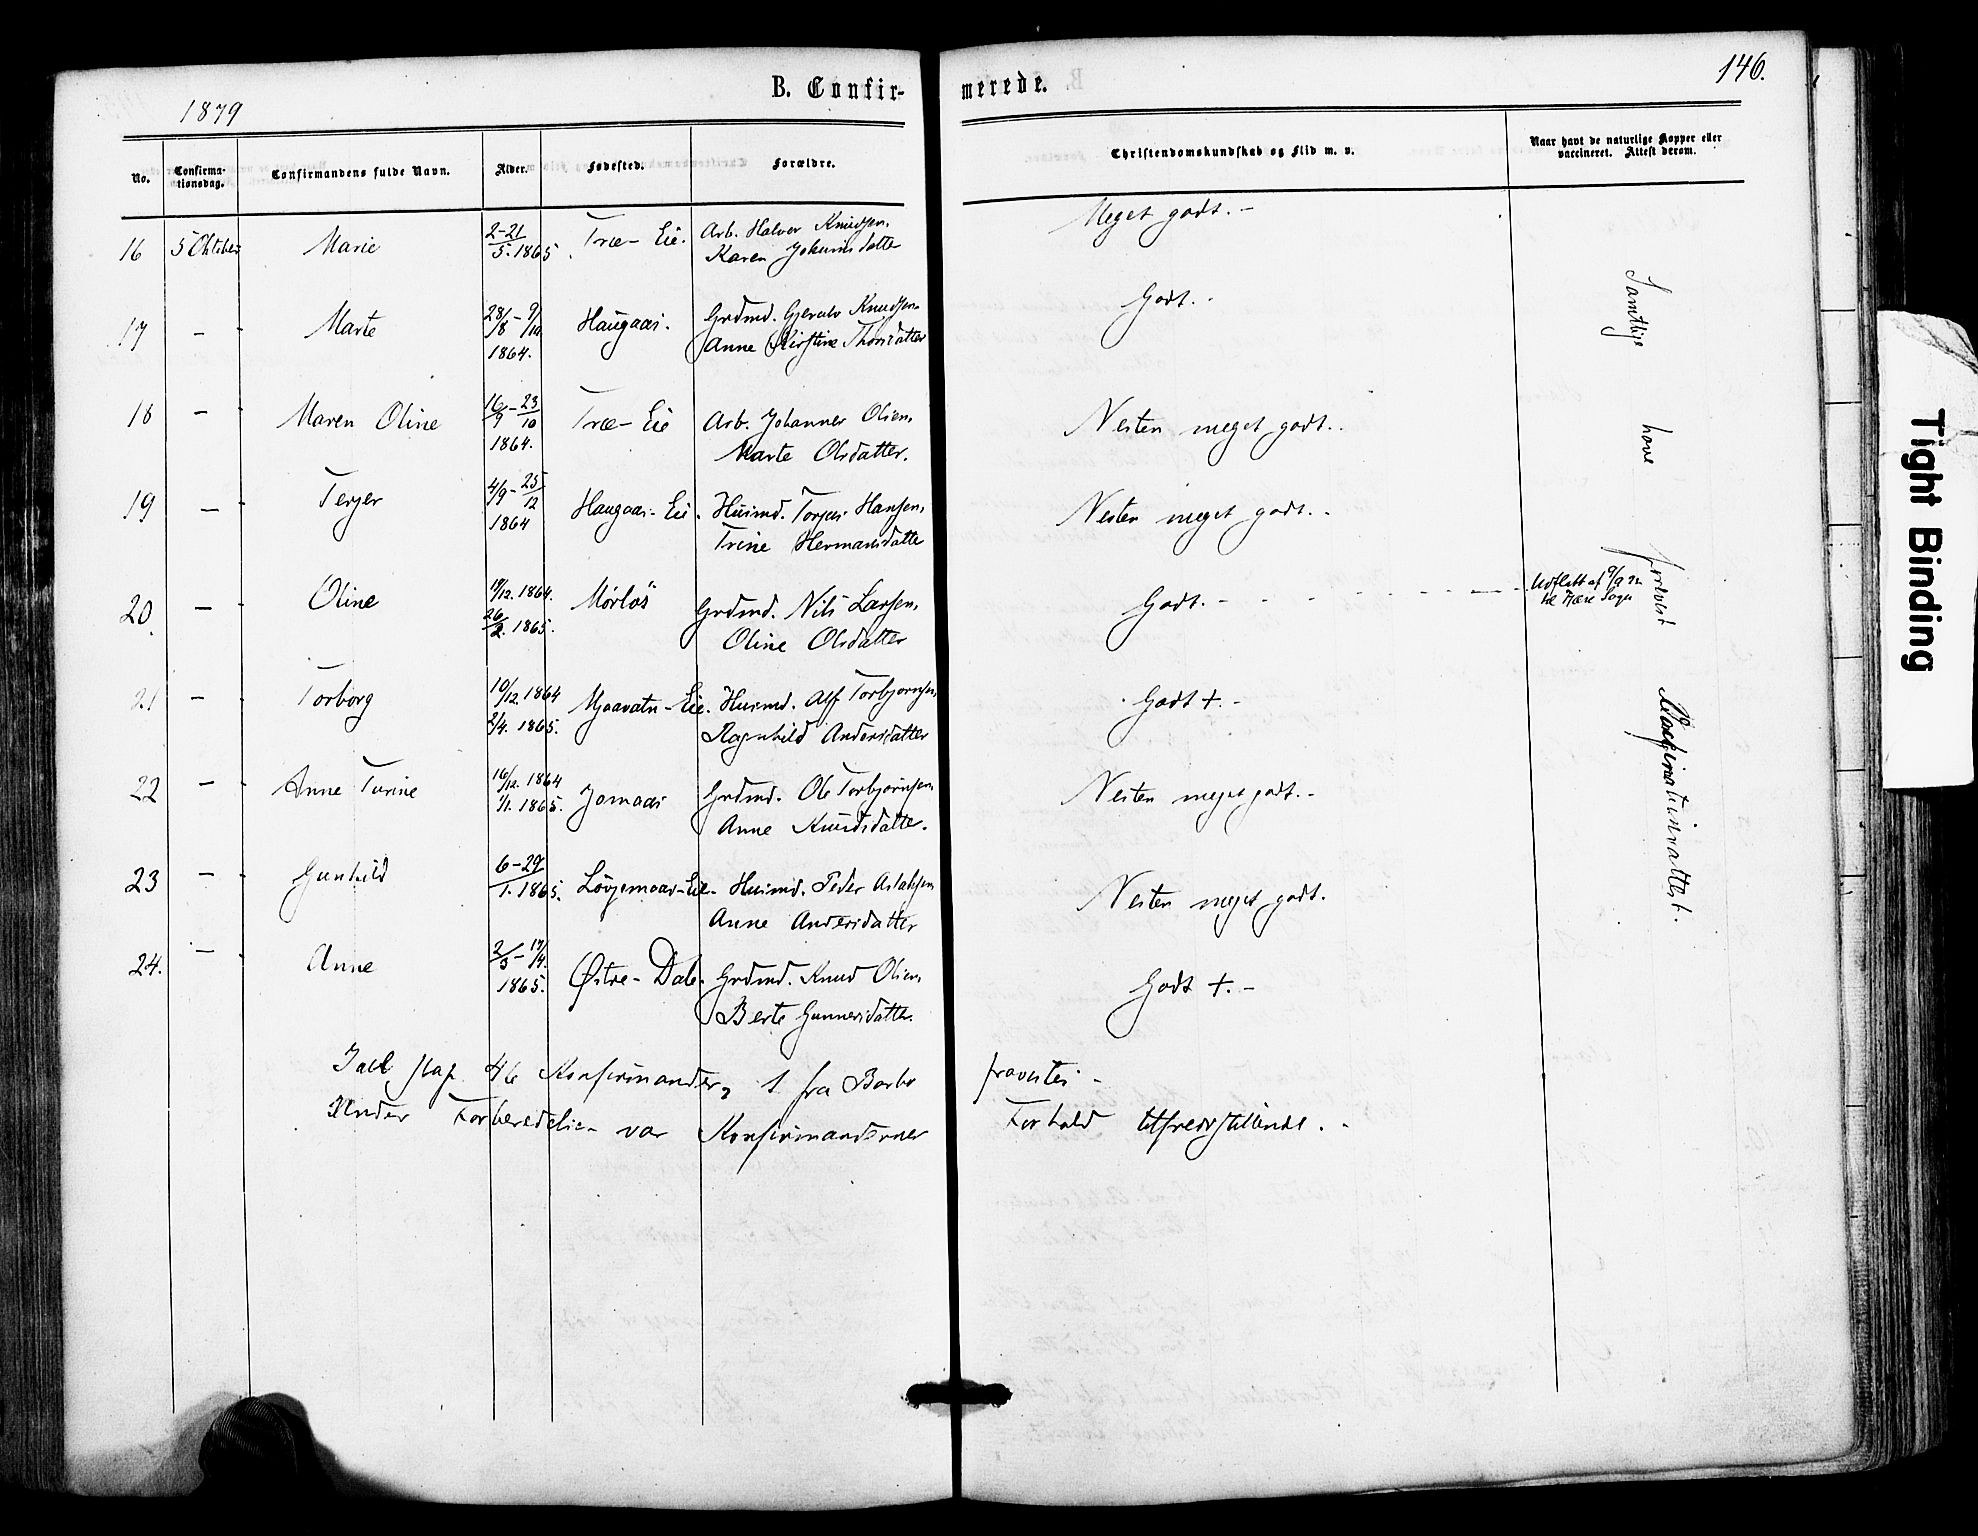 146.
1879
B. Confir-
merede.
No.
Confirma-
tionsdag.
Confirmandens fulde Navn.
Alder.
Fødested.
Forældre.
Christendomskundskab og Flid m. v.
Naar havt de naturlige Kopper eller
vaccineret. Attest derom.
16 5 Oktober Marie 2-21/5. 1865 Træ- Eie. Arb. Halvor Knudsen,
Karen
Meget godt. -
17 - Marte 28/8 - 9/10 1864. Haugaas. Grdmd. Knudsen
Anne Kirstine Thorsdatter
Godt. -
18 - Maren Oline 16/9 - 23/10 1864. Træ- Eie Arb. Johannes Olsen,
Marte Olsdatter.
Nesten meget godt. -
19 - Terjer 4/9 - 25/12 1864 Haugaas- Eie. Husmd. Torjus Hansen,
Trine Hermansdatter
Nesten meget godt. -
20 - Oline /12. 1864. 26/2. 1865. Mørlös Grdmd. Nils Larsen,
Oline Olsdatter
Godt. -
Udflytt af
21 - Torborg 10/12. 1864 2/4. 1865. Mjaavatn- Eie. Husmd. Alf Torbjornsen,
Ragnhild Andersdatter
Godt +. -
22 - Anne Turine 16/12. 1864 1/1. 1865. Jomaas Grdmd. Ole Torbjornsen,
Anne Knudsdatter.
Nesten meget godt. -
23 - Gunhild 6-29/1. 1865. Løvjomaas- Eie. Husmd. Peder Aslaksen,
Anne Andersdatter
Nesten meget godt.
24. - Anne 2/3 - 17/4. 1865. Østre- Dale. Grdmd. Knud Olsen,
Berte Gunnersdatter.
Godt +. -
Samtlige
have
forevist
Vaccinationsattest.
Ialt 46 Konfirmander, 1 fra Barbo
Under Forberedelsen var Konfirmanderner
Forhold tilfredsstillende. -
Tight Binding